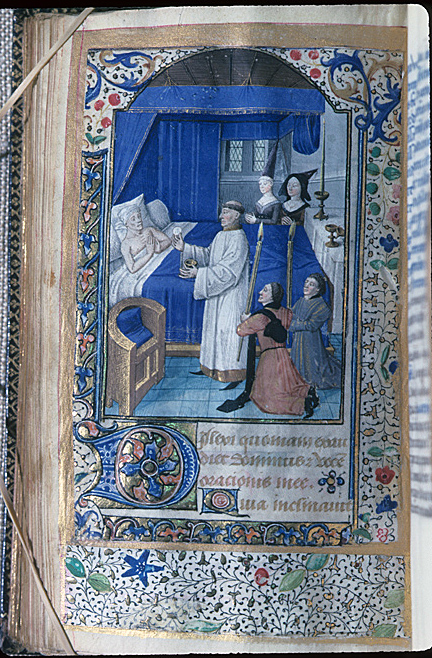 Dilexi quoniam exau
diet dominus vocē
orationis mee.
Quia inclinauit